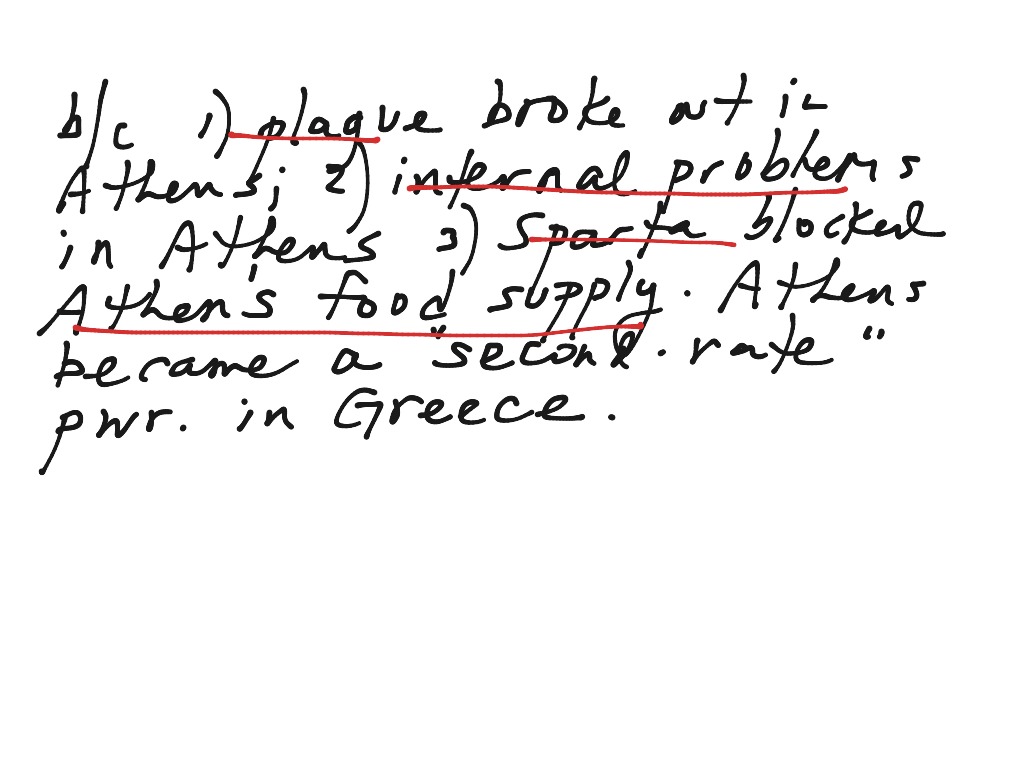 b/c 1) plague broke out in
Athens; 2) internal problems
in Athens 3) Sparta blocked
Athen's food supply. Athens
became a "second-rate"
pwr. in Greece.